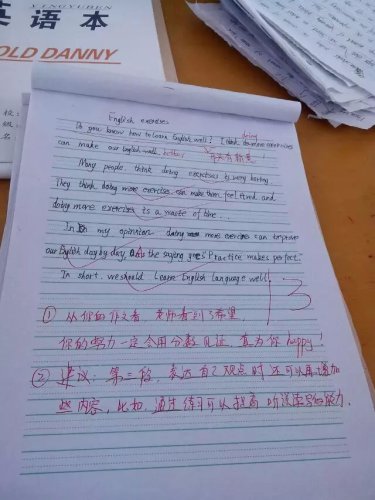 YINGYUBEN
英语本
OLD DANNY
校:
级:
名
English exercises
Do you know how to learn English well? I think do more exercises
doing
can make our English well. better
Many people think doing exercises is very boring.
They think doing more exercises can make them feel tired and
doing more exercises is a waste of time...
In my opinion doing more exercises can improve
our English day by day. As the saying goes "Practice makes perfect."
In short. we should learn English language well.
13
① 从你的作文看 老师看到了希望,
你的努力一定会用分数见证, 真为你 happy!
② 建议: 第三段, 表达自己观点时 还可以再增加
些内容, 比如, 通过练习可以提高 听说读写的能力.